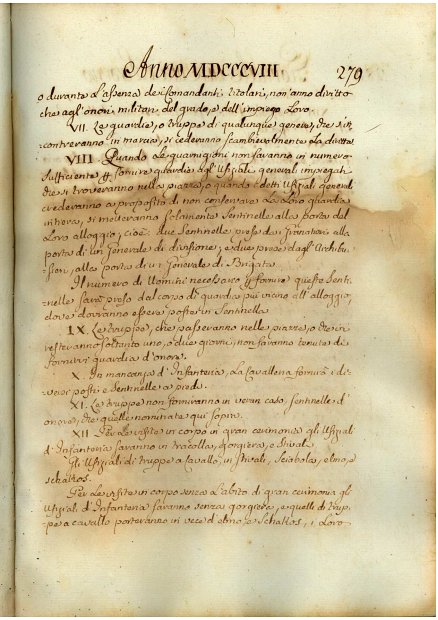 Anno MDCCCVIII 279
o durante l'assenza dei Comandanti titolari, non anno diritto
che agl'onori militari del grado, e dell'impiego Loro.
VII. Le guardie, o truppe di qualunque genere, che s'in
contreranno in marcia, si cederanno scambievolmente la diritta
VIII. Quando le guarnigioni non saranno in numero
sufficiente per fornire guardie agli Uffiziali generali impiegati
che si troveranno nella piazza, o quando i detti Uffiziali generali
crederanno a proposito di non conservare la Loro guardia
intiera, si metteranno solamente Sentinelle alla porta del
Loro alloggio; cioè: due Sentinelle prese dai Granatieri alla
porta di un Generale di divisione; e due prese dagl'Archibu
sieri, alla porta di un Generale di Brigata.
Il numero di Uomini necessaro per fornire queste Senti
nelle sarà preso dal corpo di guardia più vicino all'alloggio,
dove dovranno essere poste in Sentinella.
IX. Le truppe, che passeranno nelle piazze, o che in
resteranno soltanto uno, o due giorni, non saranno tenute di
fornirvi guardia d'onore.
X. In mancanza d'Infanteria, la Cavalleria fornirà i di
versi posti e Sentinelle a piedi.
XI. Le truppe non forniranno in verun caso, sentinelle d'
onore, che quelle nominate qui sopra.
XII. Per le visite in corpo in gran ceremonia gli Uffiziali
d'Infanteria saranno in tracolla, Gorgiera, e Stivali.
Gli Uffiziali di truppe a Cavallo, in Stivali, Sciabola, elmo, e
Schakos.
Per le visite in corpo senza l'abito di gran cerimonia gli
Uffiziali d'Infanteria saranno senza gorgiera, e quelli di trup
pe a cavallo porteranno in vece d'elmo, o Schakos, i Loro